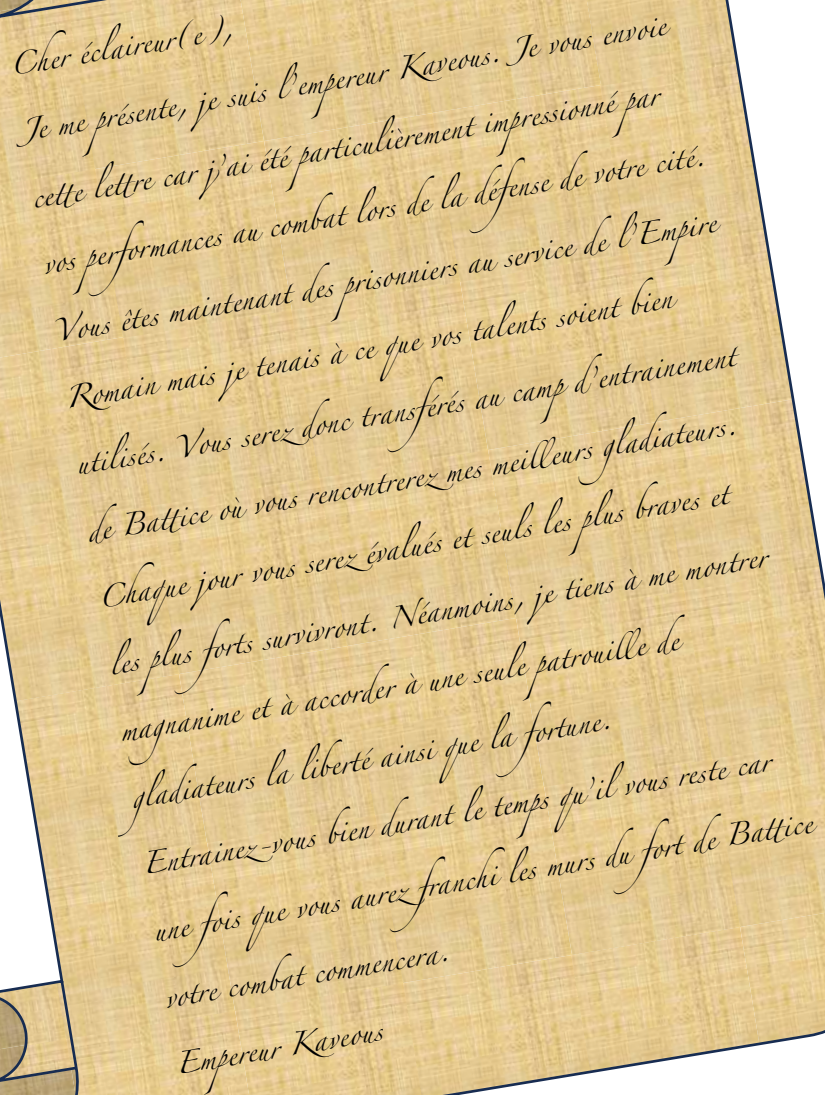 Cher éclaireur(e),
Je me présente, je suis l'empereur Kaveous. Je vous envoie
cette lettre car j'ai été particulièrement impressionné par
vos performances au combat lors de la défense de votre cité.
Vous êtes maintenant des prisonniers au service de l'Empire
Romain mais je tenais à ce que vos talents soient bien
utilisés. Vous serez donc transférés au camp d'entrainement
de Battice où vous rencontrerez mes meilleurs gladiateurs.
Chaque jour vous serez évalués et seuls les plus braves et
les plus forts survivront. Néanmoins, je tiens à me montrer
magnanime et à accorder à une seule patrouille de
gladiateurs la liberté ainsi que la fortune.
Entrainez-vous bien durant le temps qu'il vous reste car
une fois que vous aurez franchi les murs du fort de Battice
votre combat commencera.
Empereur Kaveous